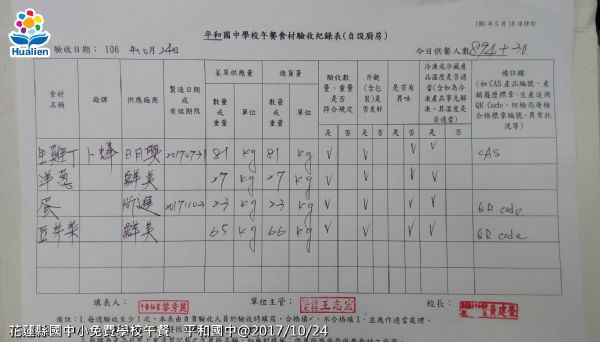 106年5月18日修訂
Hualien
平和國中學校午餐食材驗收紀錄表(自設廚房)
驗收日期： 106 年10月24日
今日供餐人數 894+30
食材名稱 廠牌 供應廠商 製造日期或有效期限 菜單供應量 進貨量 驗收數量、重量是否符合規定 外觀(含包裝)是否良好 是否有異味 冷凍或冷藏產品溫度是否適當(含如為冷凍產品事先解凍，其溫度是否適當) 備註欄(如CAS產品編號、產銷履歷標章、生產追溯QR Code、防檢局屠檢合格標章編號、異常狀況等)
數量或重量 單位 數量或重量 單位 是 否 是 否 是 否 是 否
生雞丁 卜蜂 日月興 81 kg 81 kg V V V V CAS
洋蔥 鮮美 27 kg 27 kg V V V V
蛋 23 kg 23 kg V V V V QR code
豆芽菜 鮮美 65 kg 66 kg V V V QR code
填表人： 單位主管： 王志宏 校長：
備註：1.每週驗收至少1次，本表由負責驗收人員於驗收時填寫，合格填✓，不合格填X，並應作適當處理。
花蓮縣國中小免費學校午餐 平和國中@2017/10/24